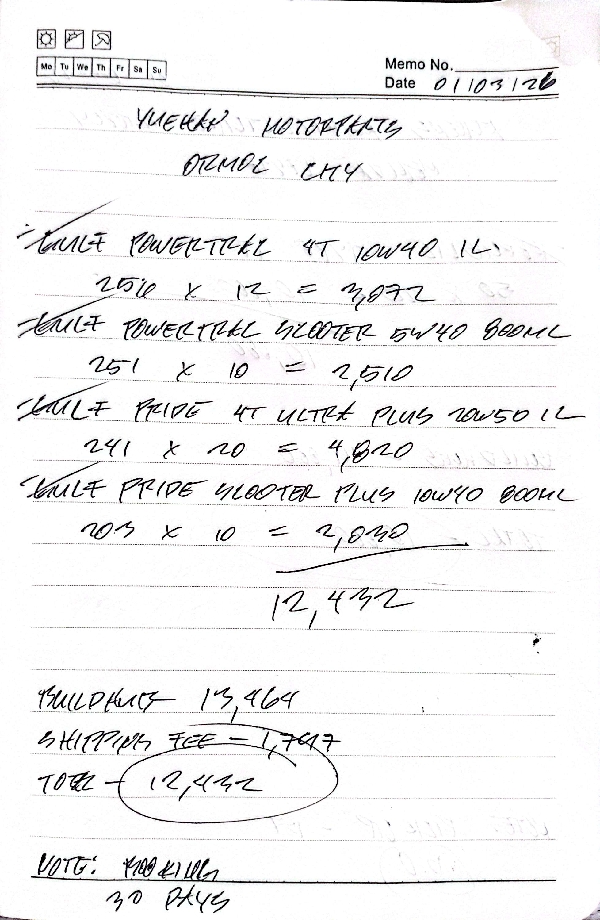 Mo Tu We Th Fr Sa Su
Memo No.
Date 01/03/26
YUEHAN MOTORPARTS
ORMOC CITY
GULF POWERTRAC 4T 10W40 1L
256 x 12 = 3,072
GULF POWERTRAC SCOOTER 5W40 800ML
251 x 10 = 2,510
GULF PRIDE 4T ULTRA PLUS 20W50 1L
241 x 20 = 4,820
GULF PRIDE SCOOTER PLUS 10W40 800ML
203 x 10 = 2,030
12,432
13,464
SHIPPING FEE - 1,747
TOTAL - 12,432
NOTE:
30 DAYS